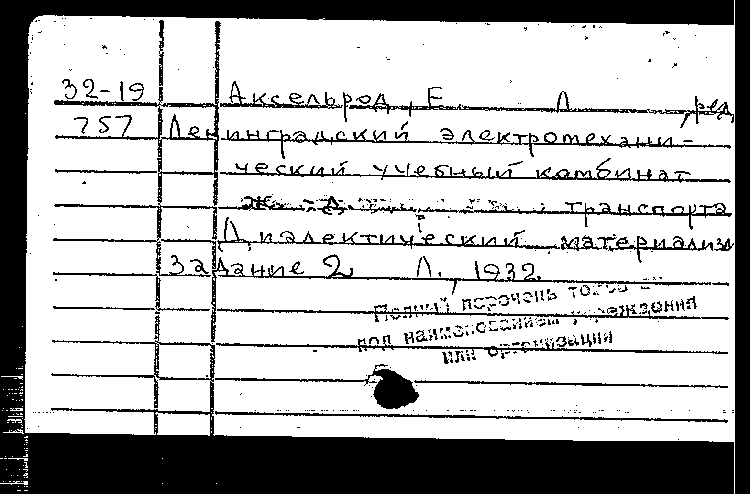 32-19 Аксельрод, Е. Л. , ред.
757 Ленинградский электротехани-
ческий учебный комбинат
ж.-д. транспорта
Диалектический материализм
Задание 2 Л., 1932.
Полный перечень томов
под наименованием учреждения
или организации